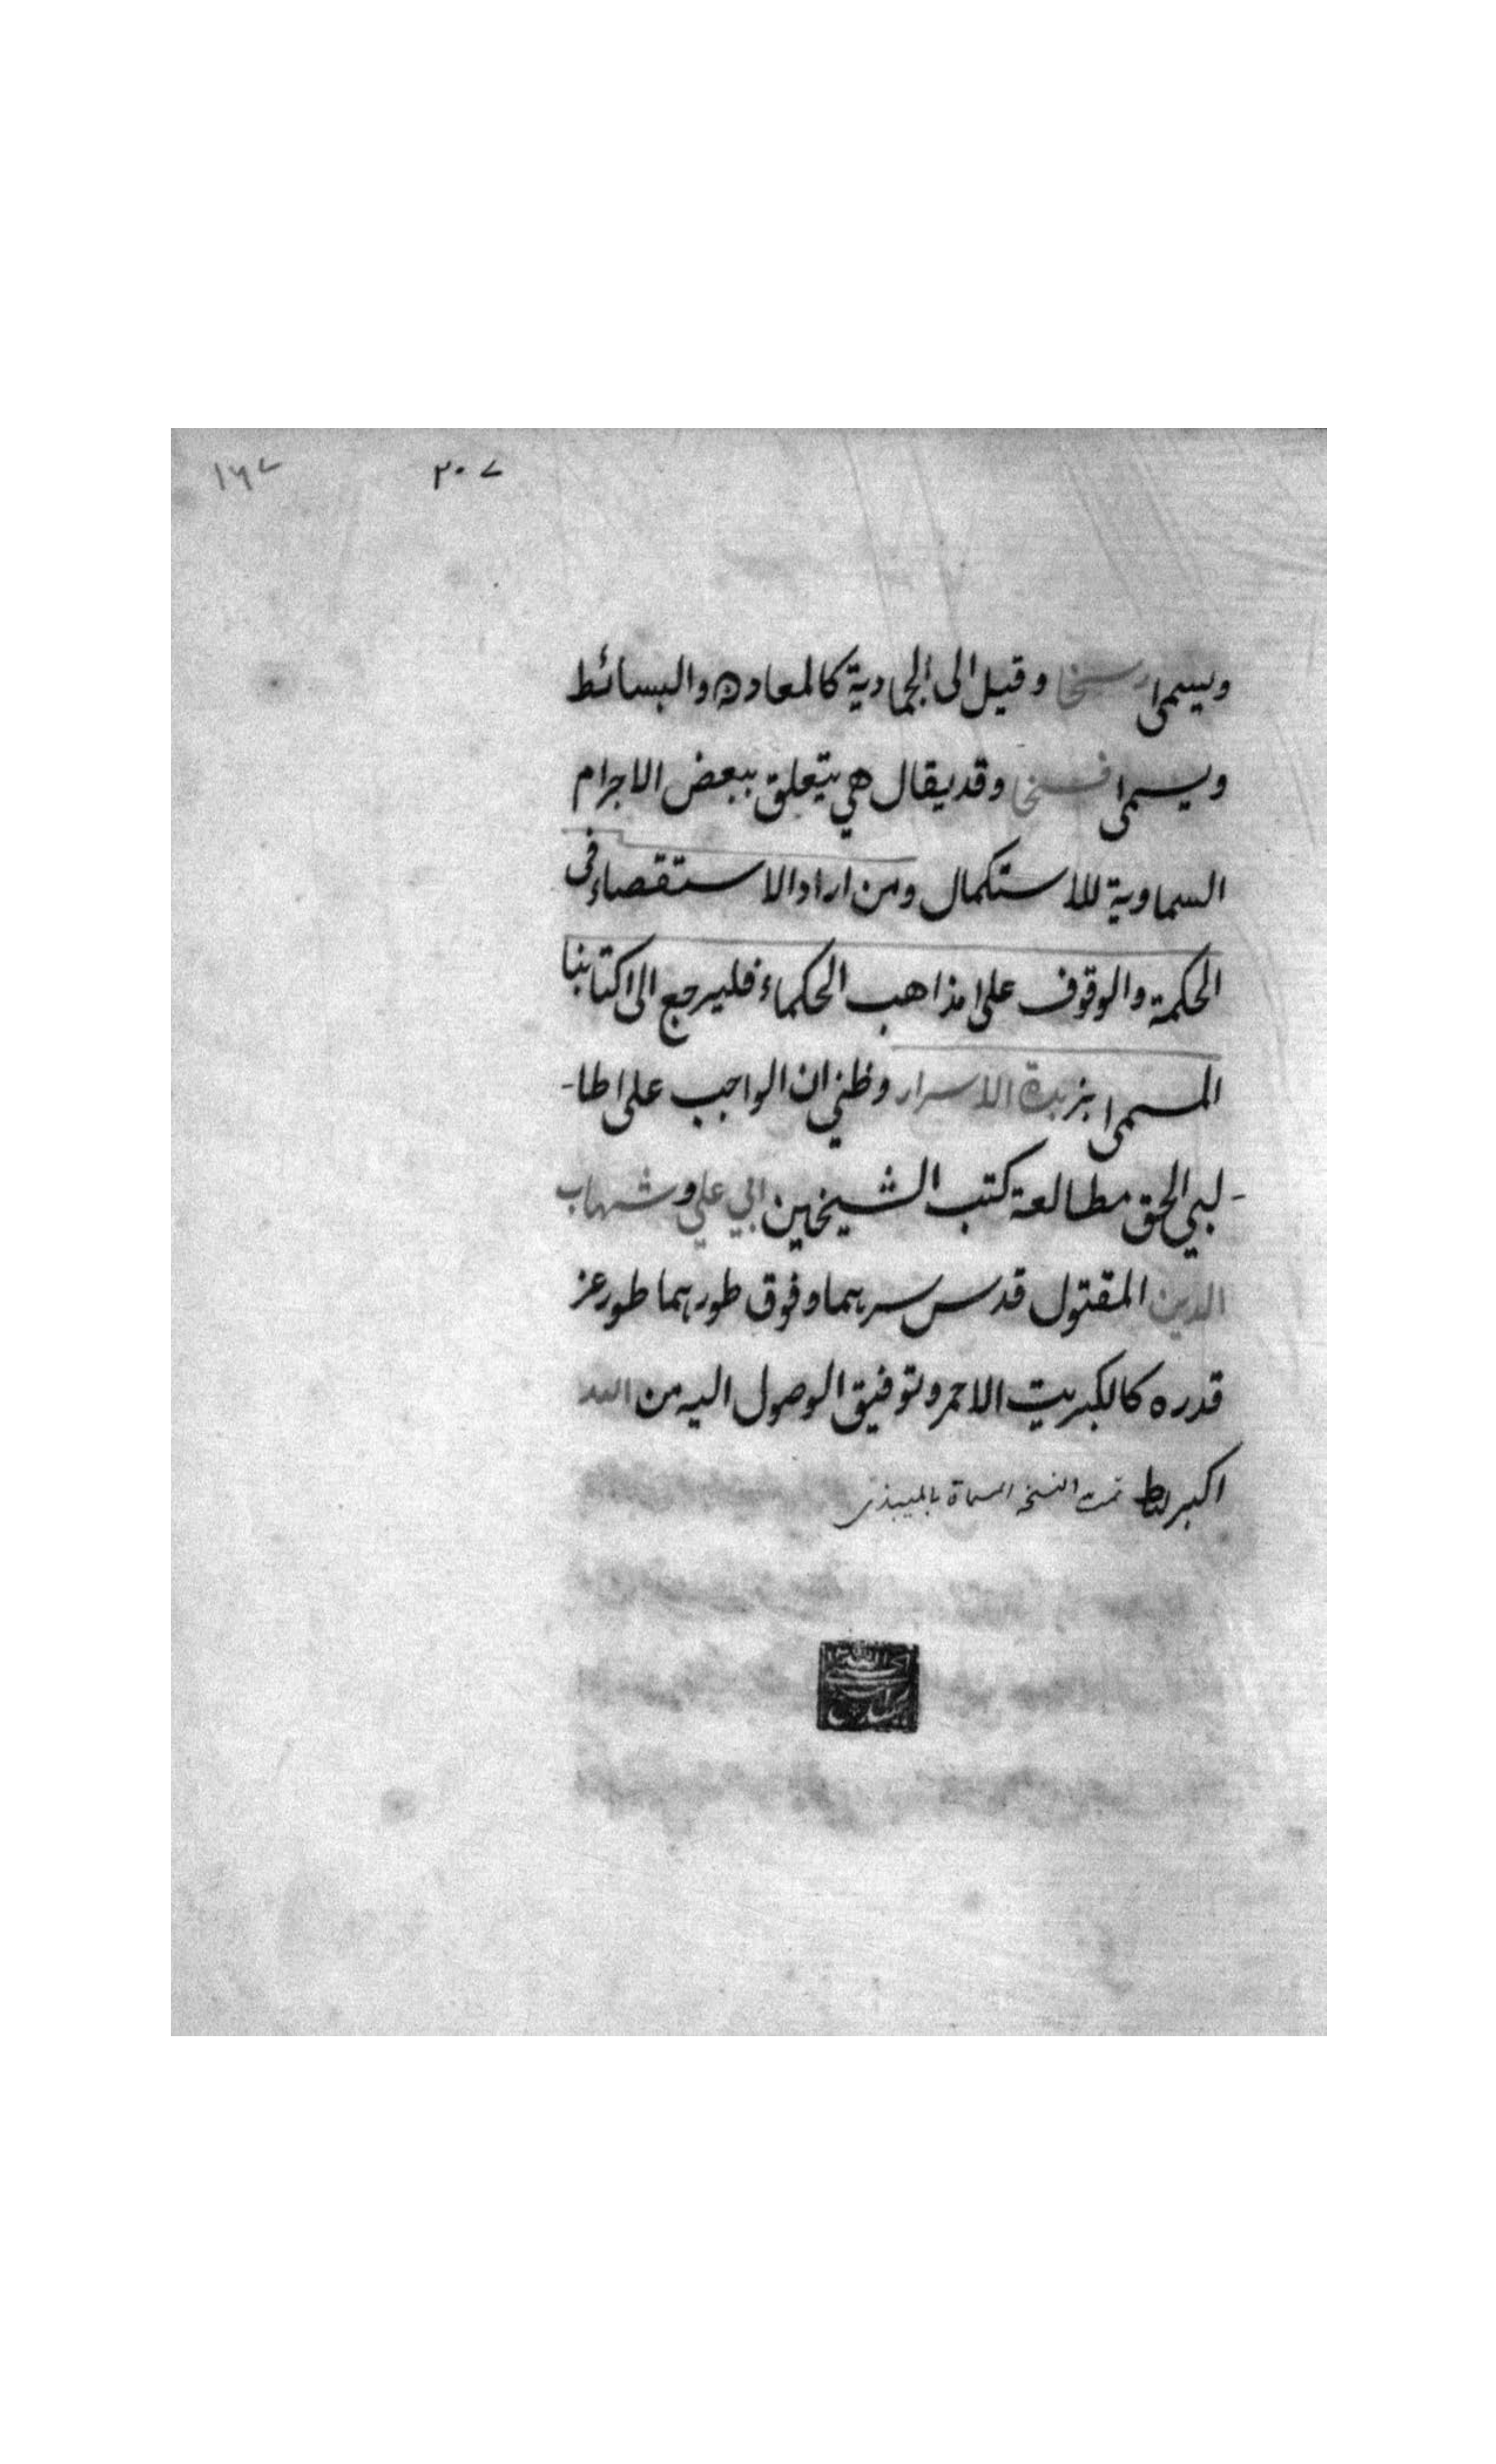 ۲۰۷ ۱۶۷
ويسمى رسخا وقيل الى الجمادية كالمعادن والبسائط
ويسمى فسخا وقد يقال هي يتعلق ببعض الاجرام
السماوية للاستكمال ومن اراد الاستقصاء فى
الحكمة والوقوف على مذاهب الحكماء فليرجع الى كتابنا
المسمى بزبدة الاسرار وظني ان الواجب على طا-
-لبي الحق مطالعة كتب الشيخين ابي علي وشهاب
الدين المقتول قدس سرهما وفوق طورهما طور عز
قدره كالكبريت الاحمر وتوفيق الوصول اليه من الله
اكبر تمت النسخه المسماة بالميبذى